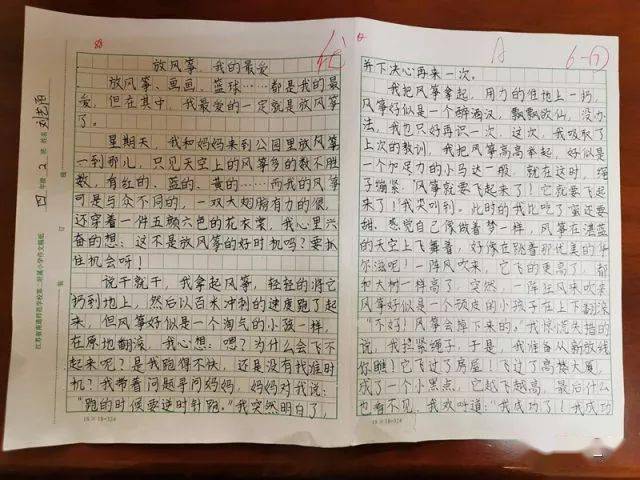 88
优
放风筝，我的最爱
放风筝、画画、篮球……都是我的最
爱，但在其中，我最爱的一定就是放风筝
了。
星期天，我和妈妈来到公园里放风筝
一到那儿，只见天空上的风筝多的数不胜
数，有红的、蓝的、黄的……而我的风筝
可是与众不同的，一双大翅膀有力的很，
还穿着一件五颜六色的花衣裳，我心里兴
奋的想：这不是放风筝的好时机吗？要抓
住机会呀！
说干就干，我拿起风筝，轻轻的将它
扔到地上，然后以百米冲刺的速度跑了起
来，但风筝好似是一个淘气的小孩一样，
在原地翻滚，我心想：嗯？为什么会飞不
起来呢？是我跑得不快，还是没有找准时
机？我带着问题寻问妈妈，妈妈对我说：
“跑的时候要逆时针跑。”我突然明白了，
18×18=324
江苏省南通师范学校第二附属小学作文稿纸
四 年级 2 班 姓名
装 订 线
A
6-
并下决心再来一次。
我把风筝拿起，用力的往地上一扔，
风筝好似是一个醉酒汉，飘飘欲仙，没办
法，我也只好再识一次，这次，我吸取了
上次的教训，我把风筝高高举起，好似是
一个加足马力的小马达一般，就在这时，绳
子绷紧，风筝就要飞起来了！它就要飞起
来了！我尖叫到。此时的我比吃了蜜还要
甜，感觉自己像做着梦一样，风筝在湛蓝
的天空上飞舞着，好像在踏着那优美的华
尔滋呢！一阵风吹来，它飞的更高了，都
和大树一样高了，突然，一阵狂风来吹
风筝好似是一个顽皮的小孩子在上下翻滚
“不好！风筝会掉下来的。”我惊慌失措的
说，我拉紧绳子，于是，我准备从新放线
你瞧！它飞过了房屋！飞过了高楼大厦，
成了一个小黑点，它越飞越高，最后什么
也看不见，我欢叫道：“我成功了！我成功
18×18=324